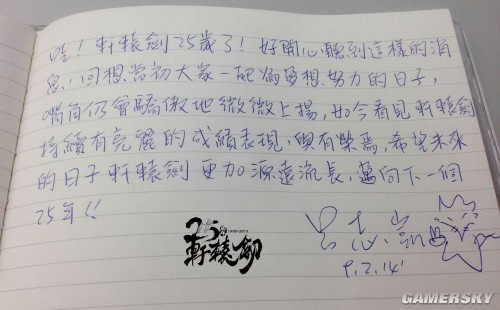 哇！軒轅劍25歲了！好開心聽到這樣的消
息，回想當初大家一起為夢想努力的日子，
嘴角仍會驕傲地微微上揚，如今看見軒轅劍
持續有亮麗的成績表現，與有榮焉，希望未來
的日子軒轅劍更加源遠流長，邁向下一個
25年！！
吳志凱
9.2.14'
25
1990-2015
軒轅劍
GAMERSKY